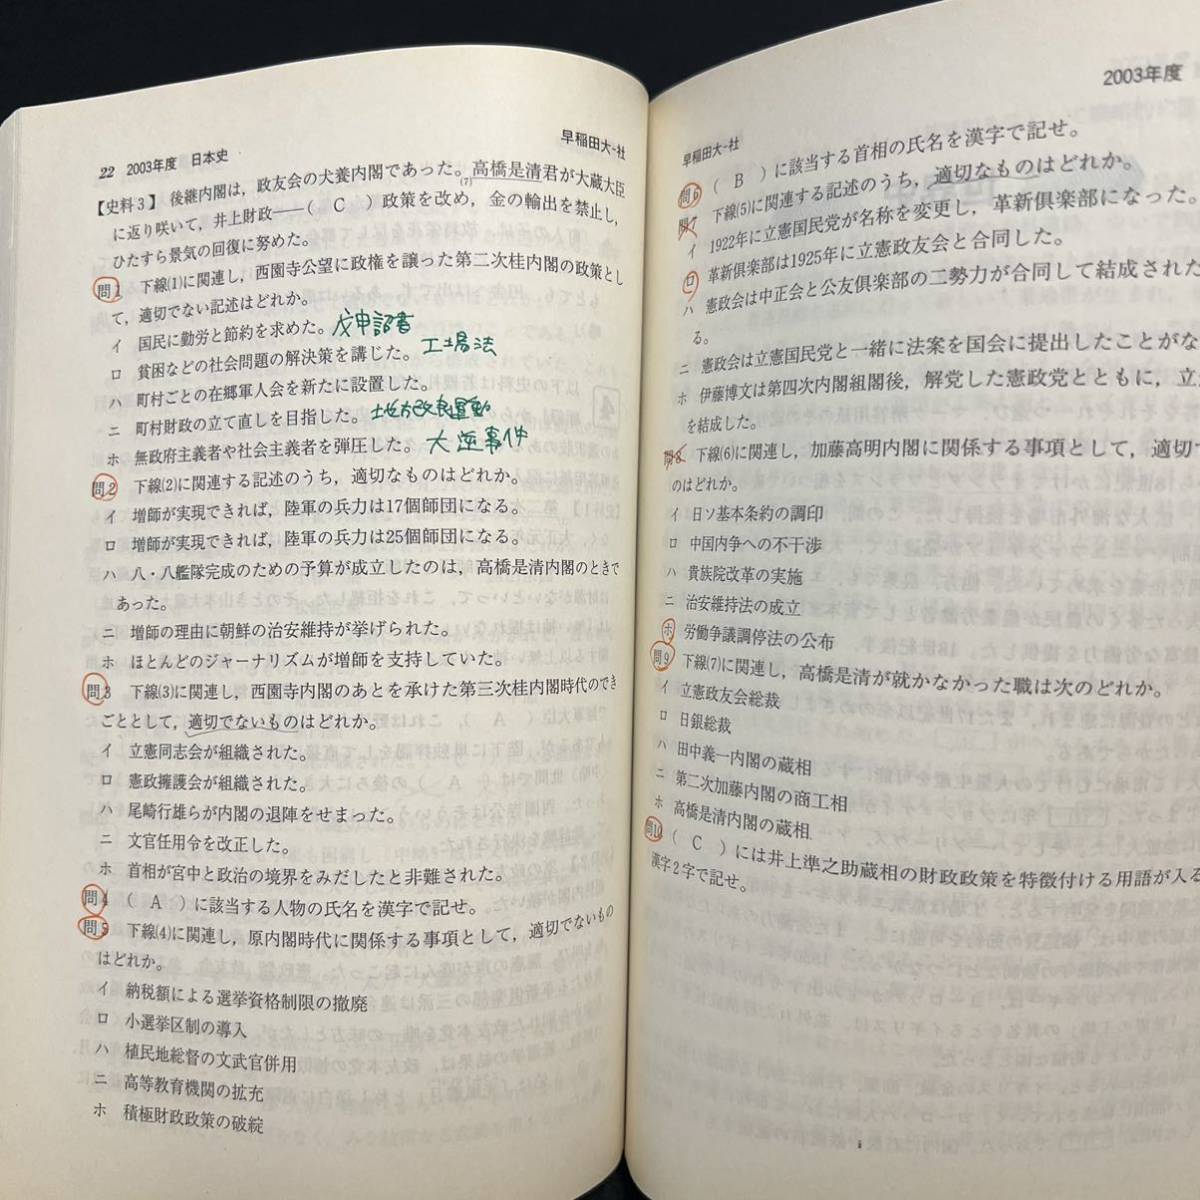 22 2003年度 日本史
早稲田大-社
【史料3】 後継内閣は，政友会の犬養内閣であった。高橋是清君が大蔵大臣
(7)
に返り咲いて，井上財政――（ C ）政策を改め，金の輸出を禁止し，
ひたすら景気の回復に努めた。
問1 下線(1)に関連し，西園寺公望に政権を譲った第二次桂内閣の政策とし
て，適切でない記述はどれか。
イ 国民に勤労と節約を求めた。 戊申詔書
ロ 貧困などの社会問題の解決策を講じた。 工場法
ハ 町村ごとの在郷軍人会を新たに設置した。
ニ 町村財政の立て直しを目指した。 地方改良運動
ホ 無政府主義者や社会主義者を弾圧した。 大逆事件
問2 下線(2)に関連する記述のうち，適切なものはどれか。
イ 増師が実現できれば，陸軍の兵力は17個師団になる。
ロ 増師が実現できれば，陸軍の兵力は25個師団になる。
ハ 八・八艦隊完成のための予算が成立したのは，高橋是清内閣のときで
あった。
ニ 増師の理由に朝鮮の治安維持が挙げられた。
ホ ほとんどのジャーナリズムが増師を支持していた。
問3 下線(3)に関連し，西園寺内閣のあとを承けた第三次桂内閣時代のでき
ごととして，適切でないものはどれか。
イ 立憲同志会が組織された。
ロ 憲政擁護会が組織された。
ハ 尾崎行雄らが内閣の退陣をせまった。
ニ 文官任用令を改正した。
ホ 首相が宮中と政治の境界をみだしたと非難された。
問4 （ A ）に該当する人物の氏名を漢字で記せ。
問5 下線(4)に関連し，原内閣時代に関係する事項として，適切でないもの
はどれか。
イ 納税額による選挙資格制限の撤廃
ロ 小選挙区制の導入
ハ 植民地総督の文武官併用
ニ 高等教育機関の拡充
ホ 積極財政政策の破綻
早稲田大-社
2003年度
問6 （ B ）に該当する首相の氏名を漢字で記せ。
問7 下線(5)に関連する記述のうち，適切なものはどれか。
イ 1922年に立憲国民党が名称を変更し，革新倶楽部になった。
ロ 革新倶楽部は1925年に立憲政友会と合同した。
ハ 憲政会は中正会と公友倶楽部の二勢力が合同して結成された
る。
ニ 憲政会は立憲国民党と一緒に法案を国会に提出したことがな
ホ 伊藤博文は第四次内閣組閣後，解党した憲政党とともに，立
を結成した。
問8 下線(6)に関連し，加藤高明内閣に関係する事項として，適切で
のはどれか。
イ 日ソ基本条約の調印
ロ 中国内争への不干渉
ハ 貴族院改革の実施
ニ 治安維持法の成立
ホ 労働争議調停法の公布
問9 下線(7)に関連し，高橋是清が就かなかった職は次のどれか。
イ 立憲政友会総裁
ロ 日銀総裁
ハ 田中義一内閣の蔵相
ニ 第二次加藤内閣の商工相
ホ 高橋是清内閣の蔵相
問10 （ C ）には井上準之助蔵相の財政政策を特徴付ける用語が入る
漢字2字で記せ。